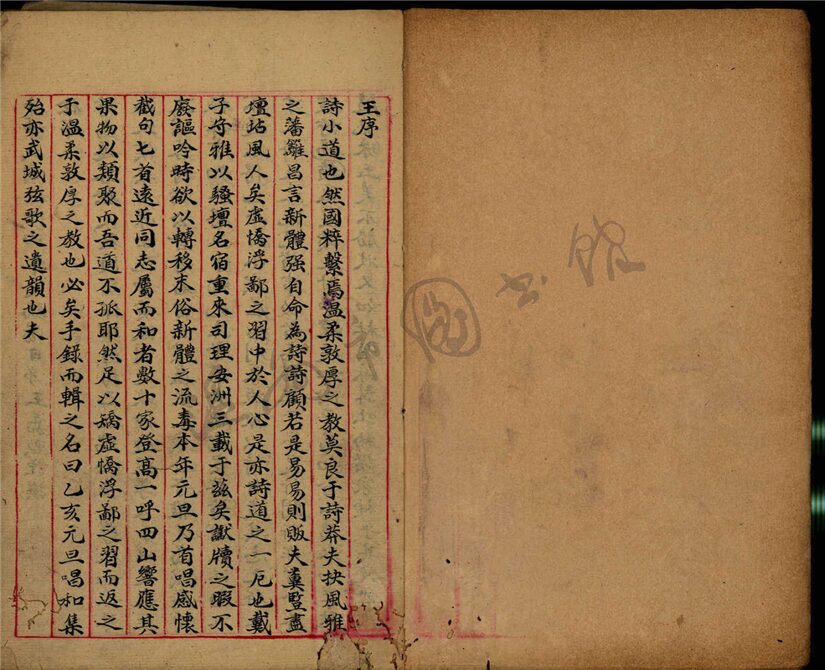 王序
詩小道也然國粹繫焉温柔敦厚之教莫良于詩莽夫抉風雅
之藩籬昌言新體强自命為詩詩顧若是易易則販夫糞豎盡
壇坫風人矣虚憍浮鄙之習中於人心是亦詩道之一厄也戴
子守雅以騷壇名宿重來司理安洲三載于兹矣讞牘之暇不
廢謳吟時欲以轉移末俗新體之流毒本年元旦乃首唱感懷
截句七首遠近同志屬而和者數十家登高一呼四山響應其
果物以類聚而吾道不孤耶然足以矯虚憍浮鄙之習而返之
于温柔敦厚之教也必矣手錄而輯之名曰乙亥元旦唱和集
殆亦武城弦歌之遺韻也夫